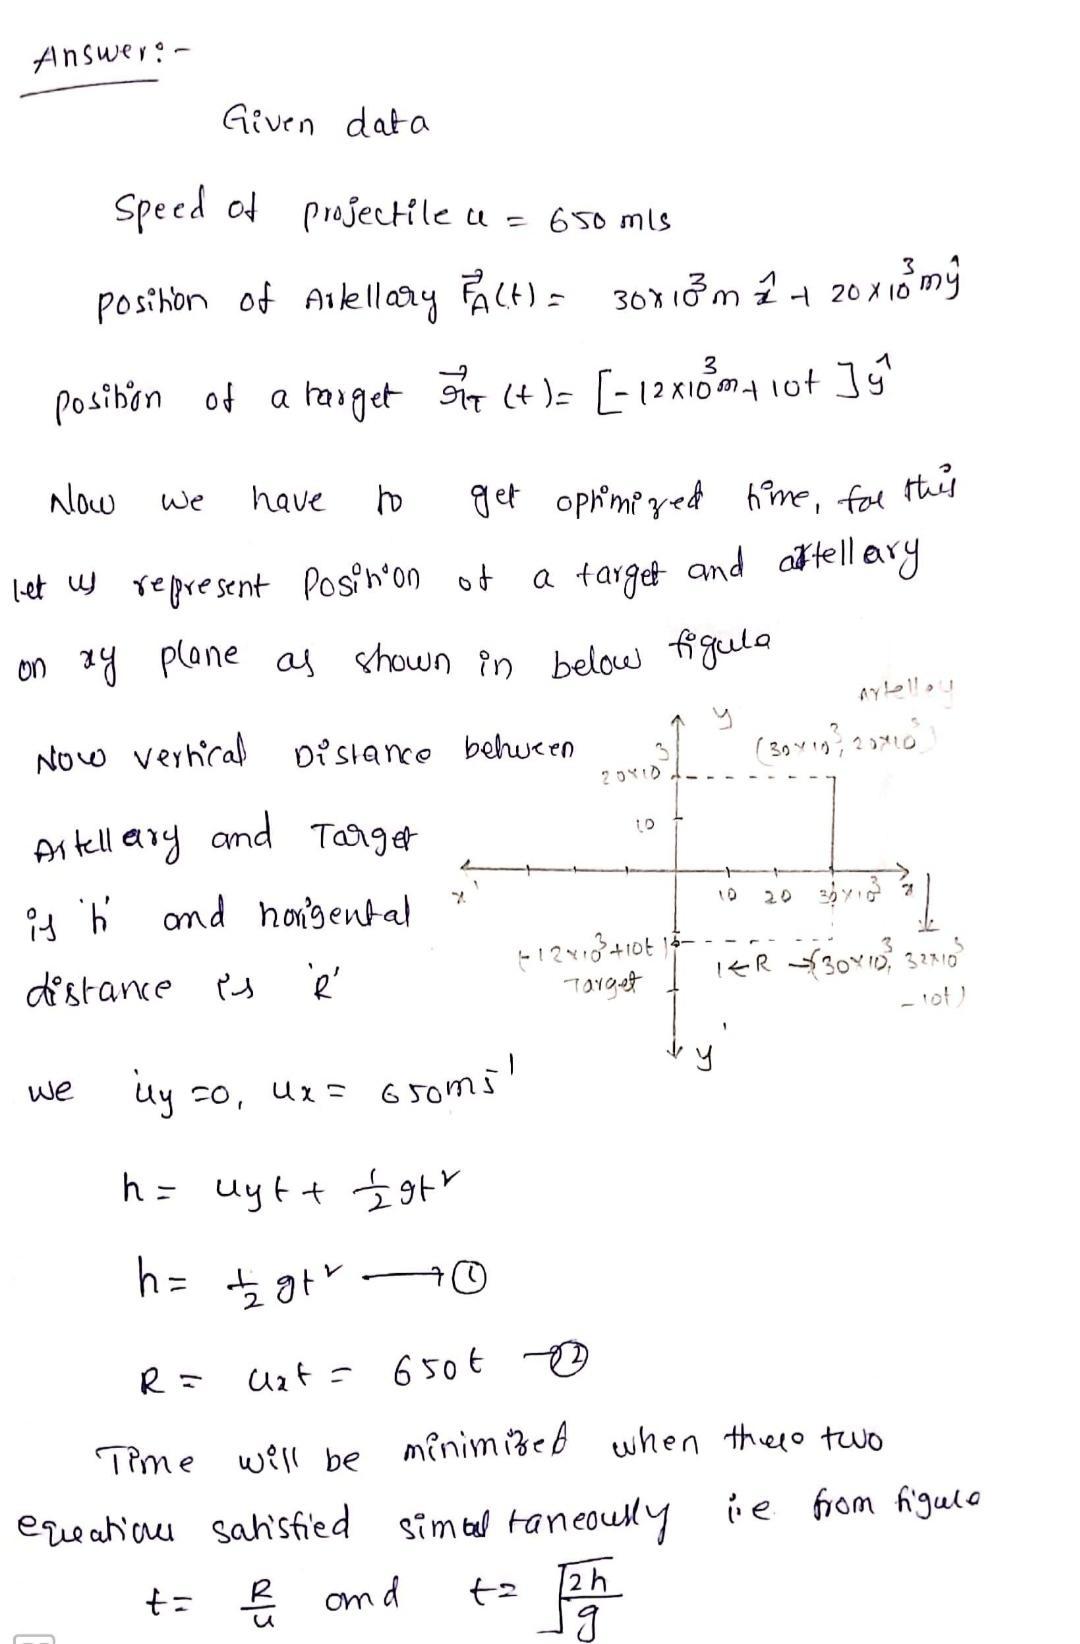 Answer:-
Given data
Speed of projectile u = 650 m/s
position of Artellary r⃗A(t) = 30×10³m x̂ + 20×10³mŷ
position of a target r⃗T (t) = [-12×10³m+10t]ŷ
Now we have to get optimized time, for this
let us represent Position of a target and artellary
on xy plane as shown in below figure
Now vertical Distance between
Artellary and Target
is 'h' and horigental
distance is 'R'
y
Artellay
(30×10³, 20×10³)
20×10³
10
x'
10 20 30×10³ x
-12×10³+10t
Target
R
(30×10³, 32×10³
-10t)
y'
we uy=0, ux = 650ms⁻¹
h = uyt + ½gt²
h = ½gt² → ①
R = uxt = 650t → ②
Time will be minimized when these two
equations satisfied simultaneously i.e from figure
t = R/u and t = √(2h/g)